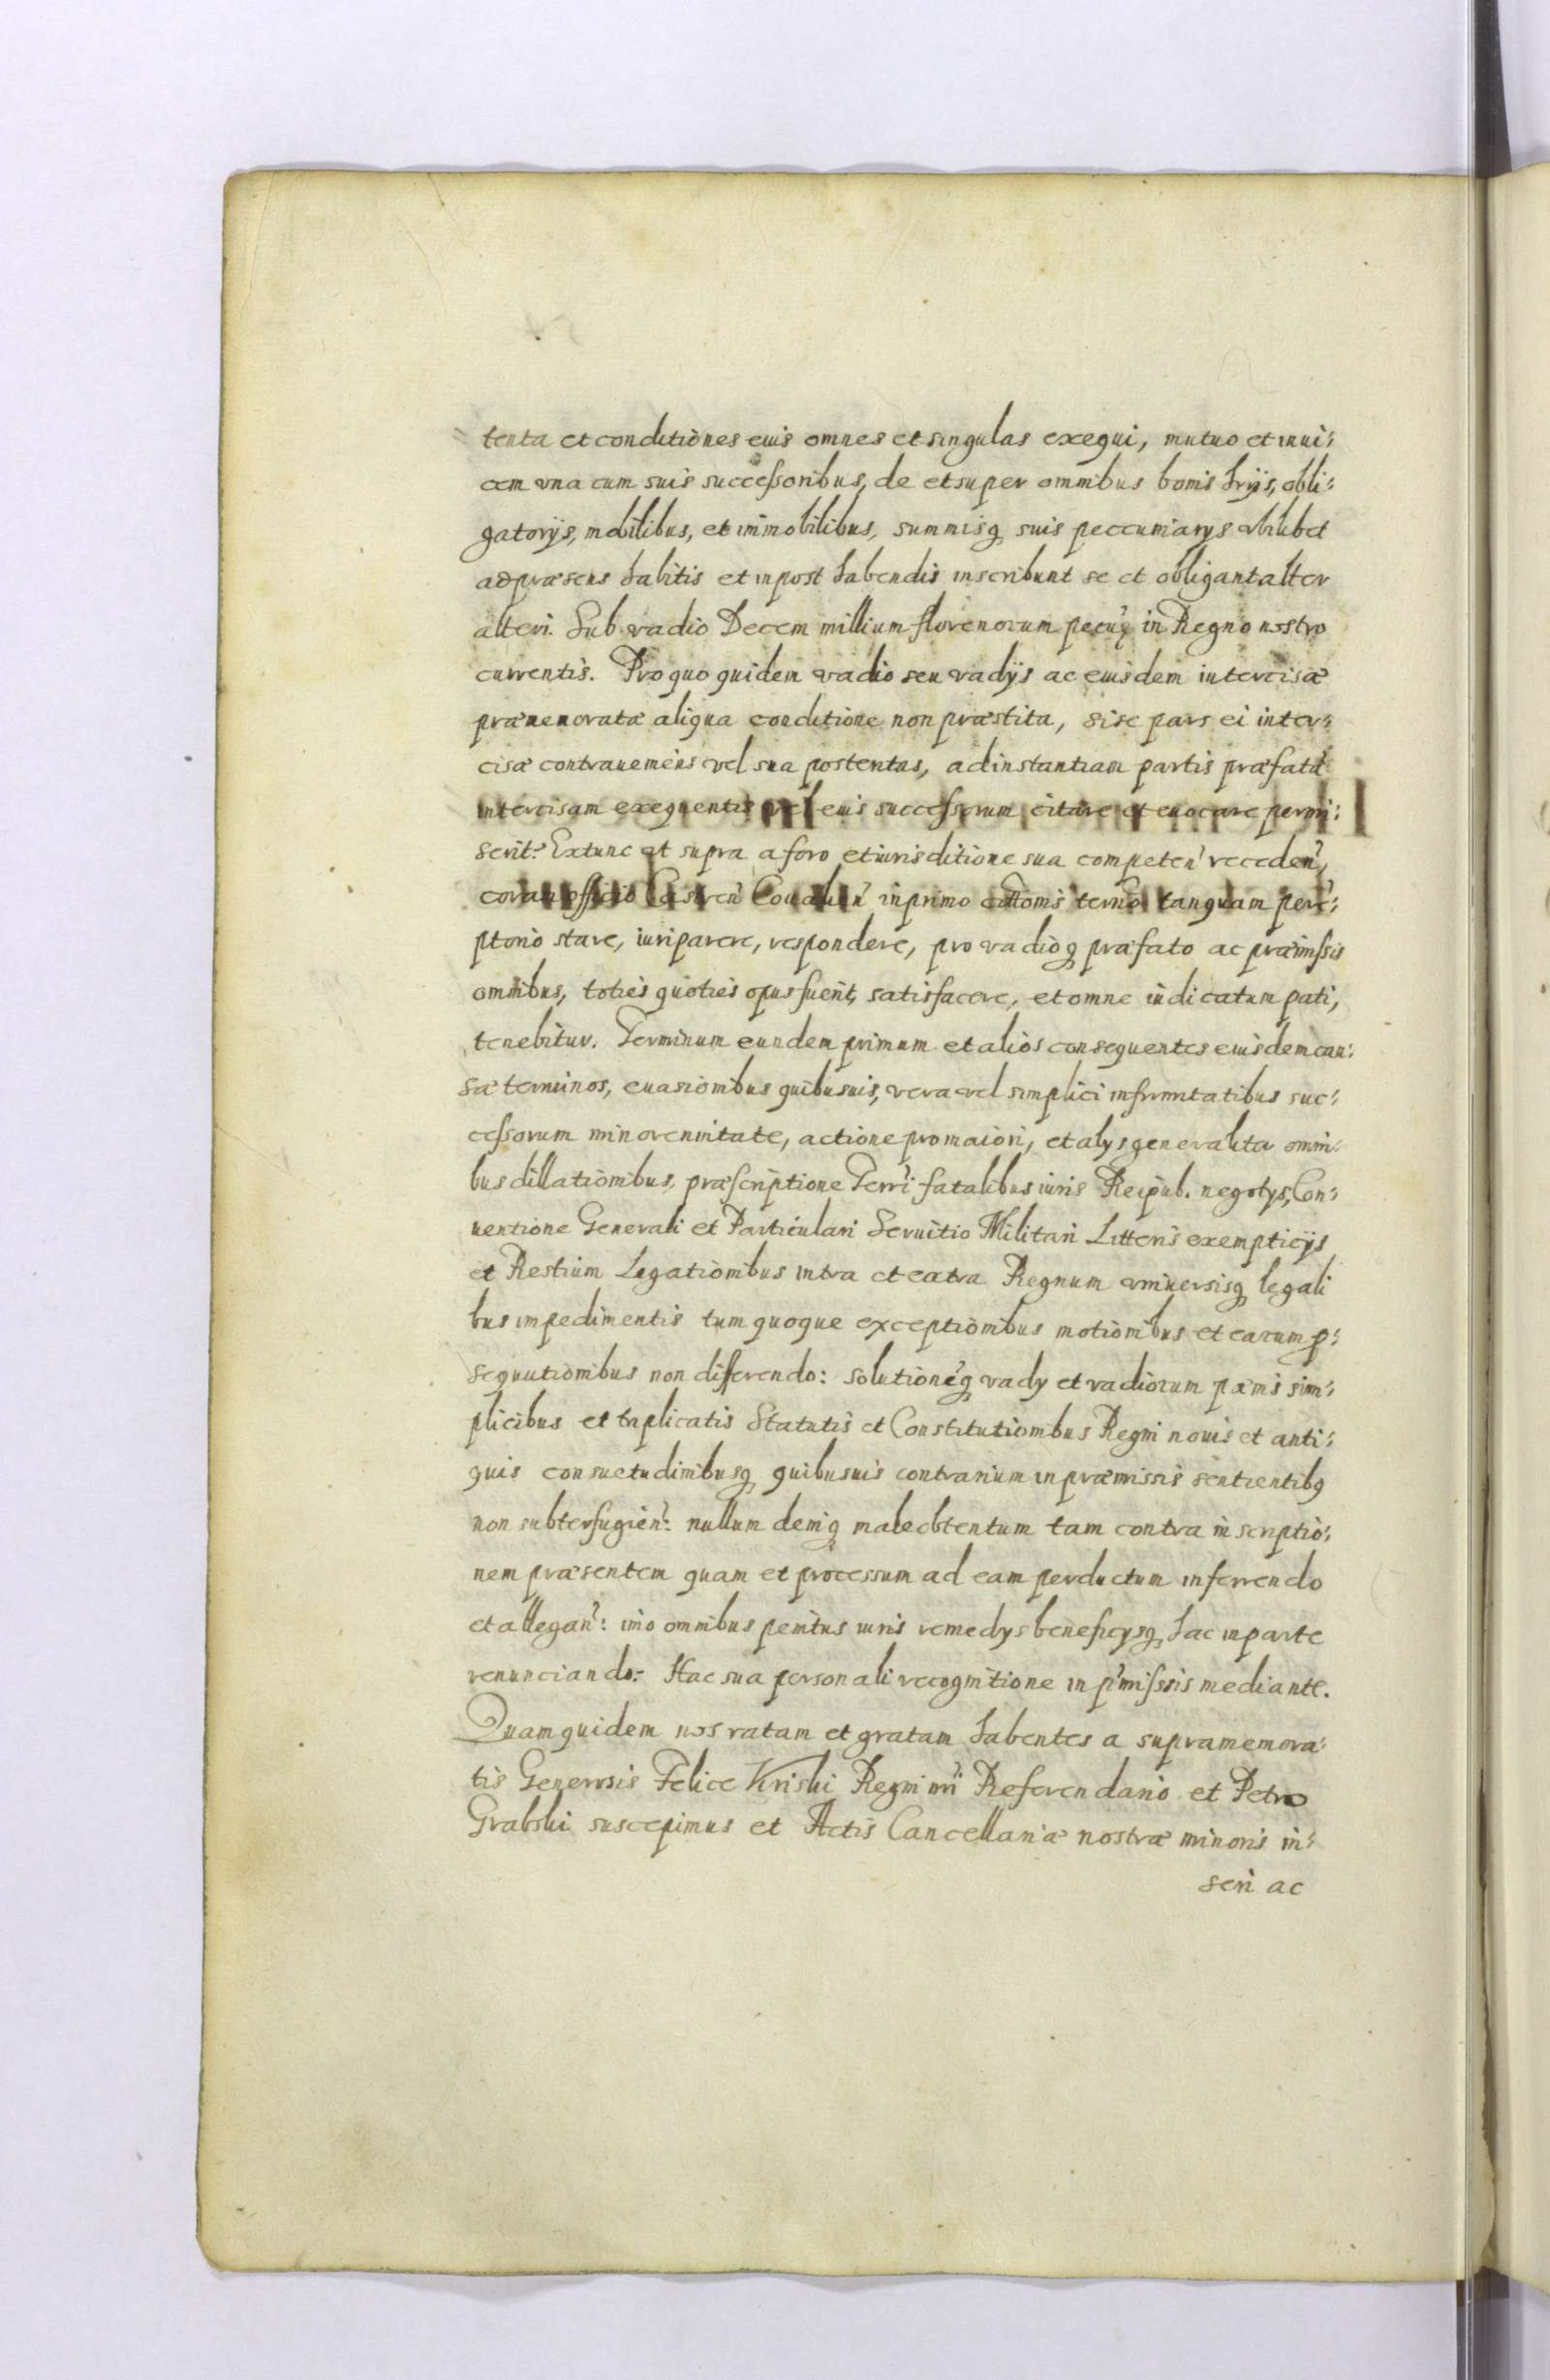 tenta et conditiones eius omnes et singulas exequi, mutuo et inui:
cem vna cum suis successoribus, de et super omnibus bonis hrijs, obli:
gatorijs, mobilibus, et immobilibus, summisq suis peccuniarys vbilibet
ad præsens habitis et inpost habendis inscribunt se et obligant alter
alteri. Sub vadio Decem millium florenorum pecu in Regno nostro
currentis. Pro quo quidem vadio seu vadijs ac eiusdem intercisæ
præmemoratæ aliqua conditione non præstita, si se pars ei inter:
cisæ contraueniens vel sua posteritas, ad instantiam partis præfatæ
intercisam exequentis vel eius successorum citare et euocare permi:
serit: Extunc vt supra a foro et iurisditione sua competen receden,
coram officio Castren in primo cittonis termo tanquam perē:
ptorio stare, iuri parere, respondere, pro vadioq præfato ac præmissis
omnibus, toties quoties opus fuerit, satisfacere, et omne iudicatum pati,
tenebitur. Terminum eundem primum et alios consequentes eiusdem cau:
sæ terminos, euasionibus quibusuis, vera vel simplici infirmitatibus suc:
cessorum minorennitate, actione pro maiori, et alys generaliter omni:
bus dillationibus, præscriptione Terri fatalibus iuris Reipub. negotys, Con:
uentione Generali et Particulari Seruitio Militari Litteris exempticijs
et Restium Legationibus intra et extra Regnum vniuersisq legali
bus impedimentis tum quoque exceptionibus motionibus et earum p:
sequutionibus non differendo: solutioneq vady et vadiorum pænis sim:
plicibus et triplicatis Statutis et Constitutionibus Regni nouis et anti:
quis consuetudinibusq quibusuis contrarium in præmissis sentientibq
non subterfugien: nullum deniq male obtentum tam contra inscriptio:
nem præsentem quam et processum ad eam perductum inferrendo
et allegan: imo omnibus penitus iuris remedys beneficysq hac in parte
renunciando: Hac sua personali recognitione in pmissis mediante.
Quam quidem nos ratam et gratam habentes a supramemora:
tis Generosis Felice Kriski Regni nri Referendario et Petro
Grabski suscepimus et Actis Cancellariæ nostræ minoris in:
seri ac